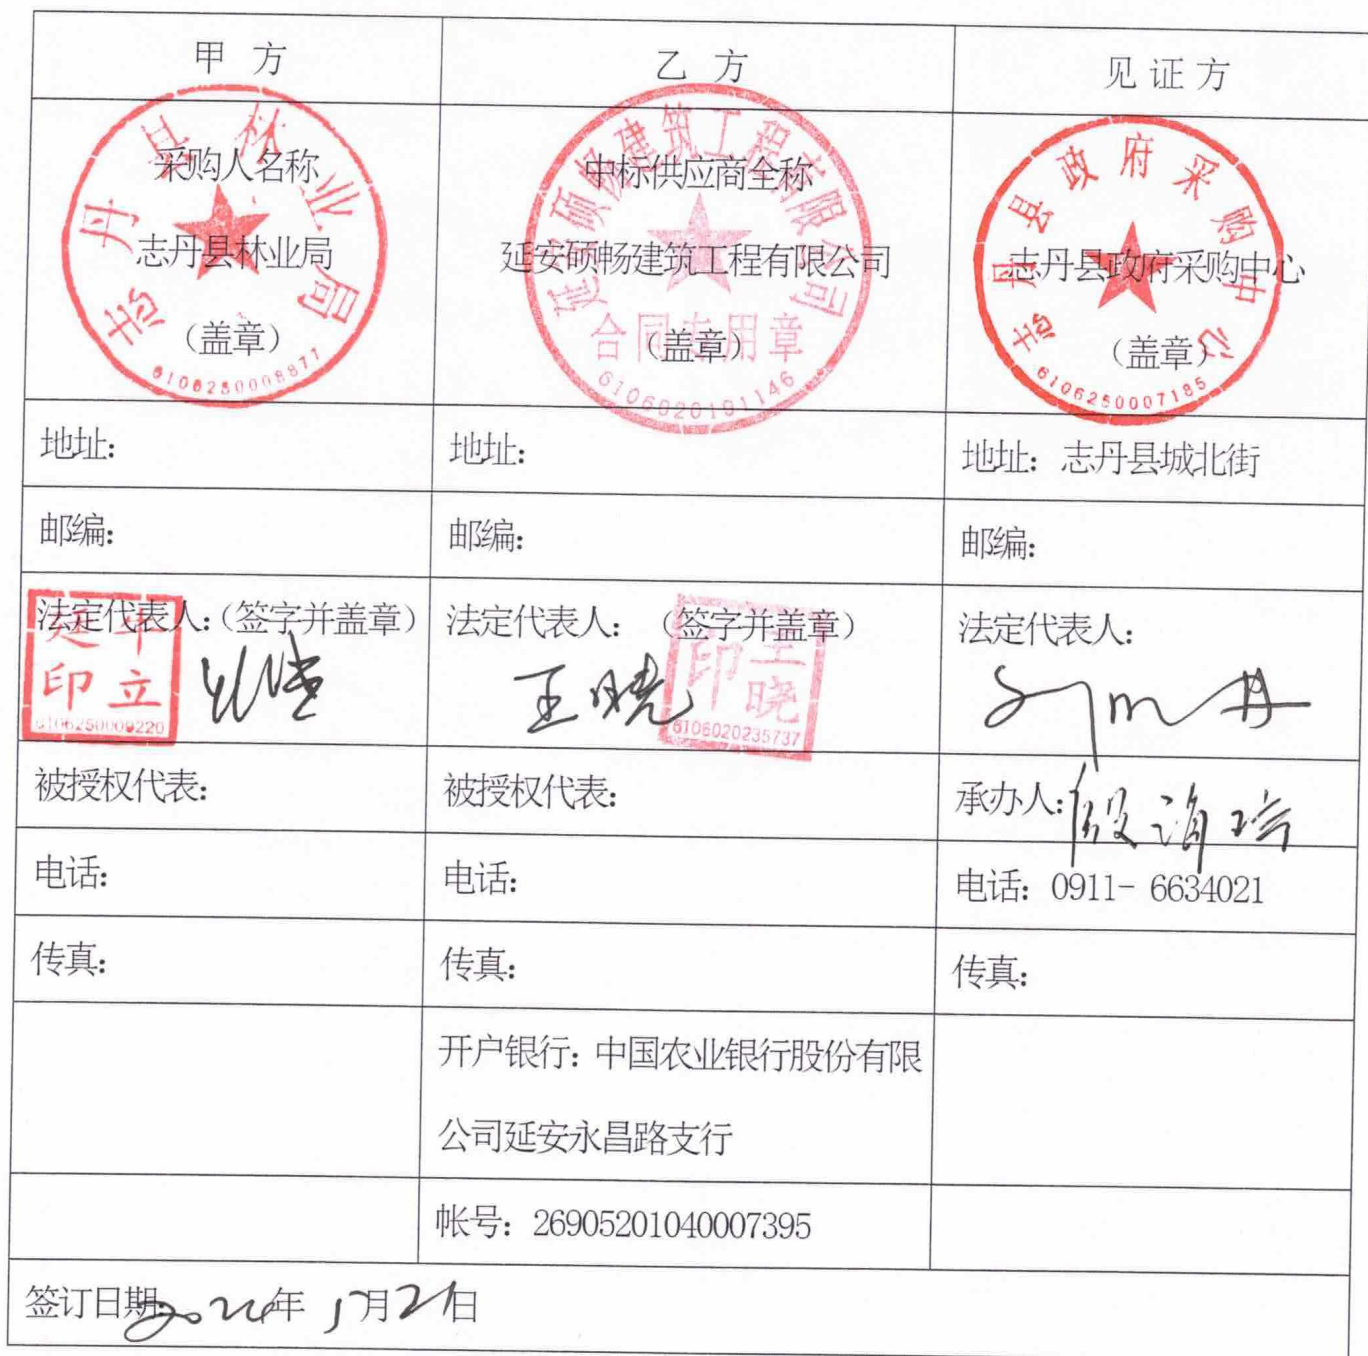 甲 方
乙 方
见 证 方
采购人名称
志丹县林业局
(盖章)
志丹县林业局
6106250008877
中标供应商全称
延安硕畅建筑工程有限公司
(盖章)
延安硕畅建筑工程有限公司
合同专用章
6106020101146
志丹县政府采购中心
(盖章)
志丹县政府采购中心
6106250007185
地址:
地址:
地址: 志丹县城北街
邮编:
邮编:
邮编:
法定代表人:(签字并盖章)
6106250009220
法定代表人: (签字并盖章)
王晓
王晓印
6106020235737
法定代表人:
被授权代表:
被授权代表:
承办人:
电话:
电话:
电话: 0911- 6634021
传真:
传真:
传真:
开户银行: 中国农业银行股份有限
公司延安永昌路支行
帐号: 26905201040007395
签订日期: 年 5月21日